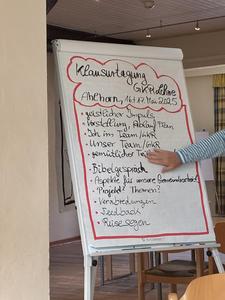 Klausurtagung
GKR Lehre
Ahlhorn, 16+17. Mai 2025
• geistlicher Impuls
• Vorstellung, Ablauf, Team
• Ich im Team/GKR
• Unser Team/GKR
• gemütlicher
• Bibelgespräch
• Aspekte für unsere
• Projekt? Themen?
• Verabredungen
• Feedback
• Reisesegen